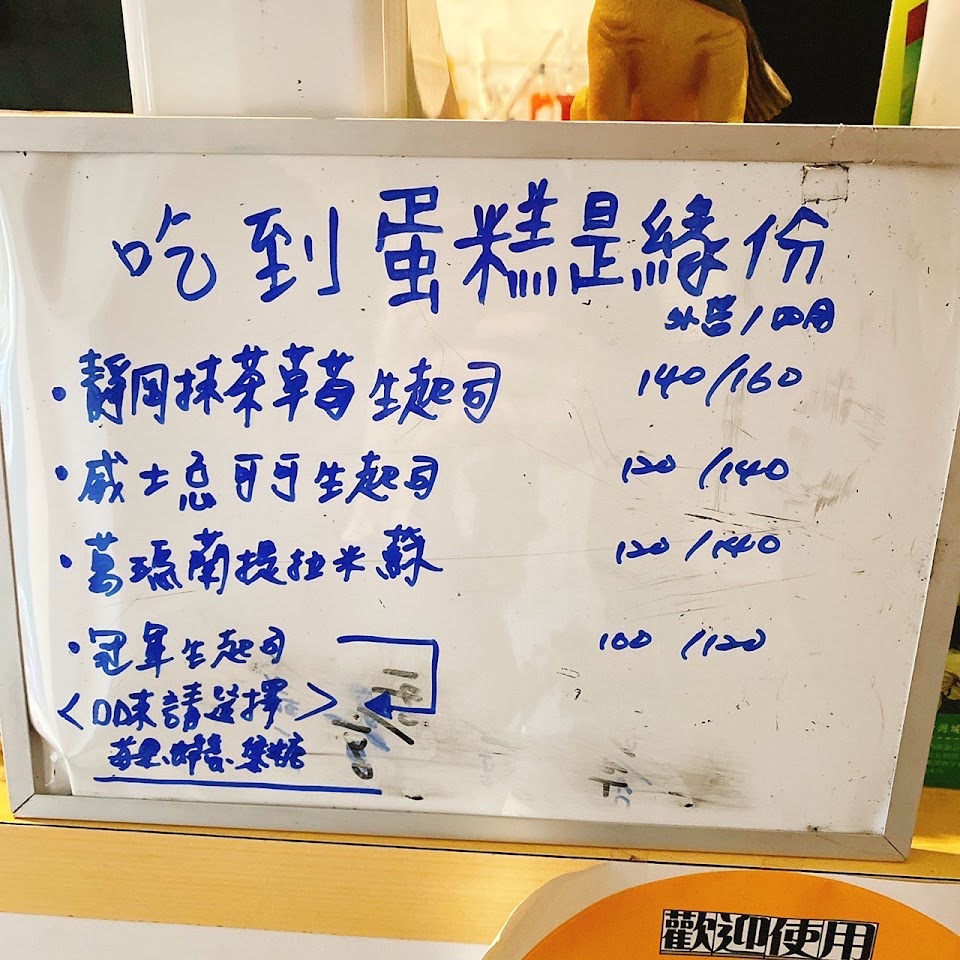 吃到蛋糕是緣份
外帶/內用
・靜岡抹茶草莓生起司 140/160
・威士忌可可生起司 120/140
・葛瑪蘭提拉米蘇 120/140
・冠軍生起司 100/120
<口味請選擇>
歡迎使用